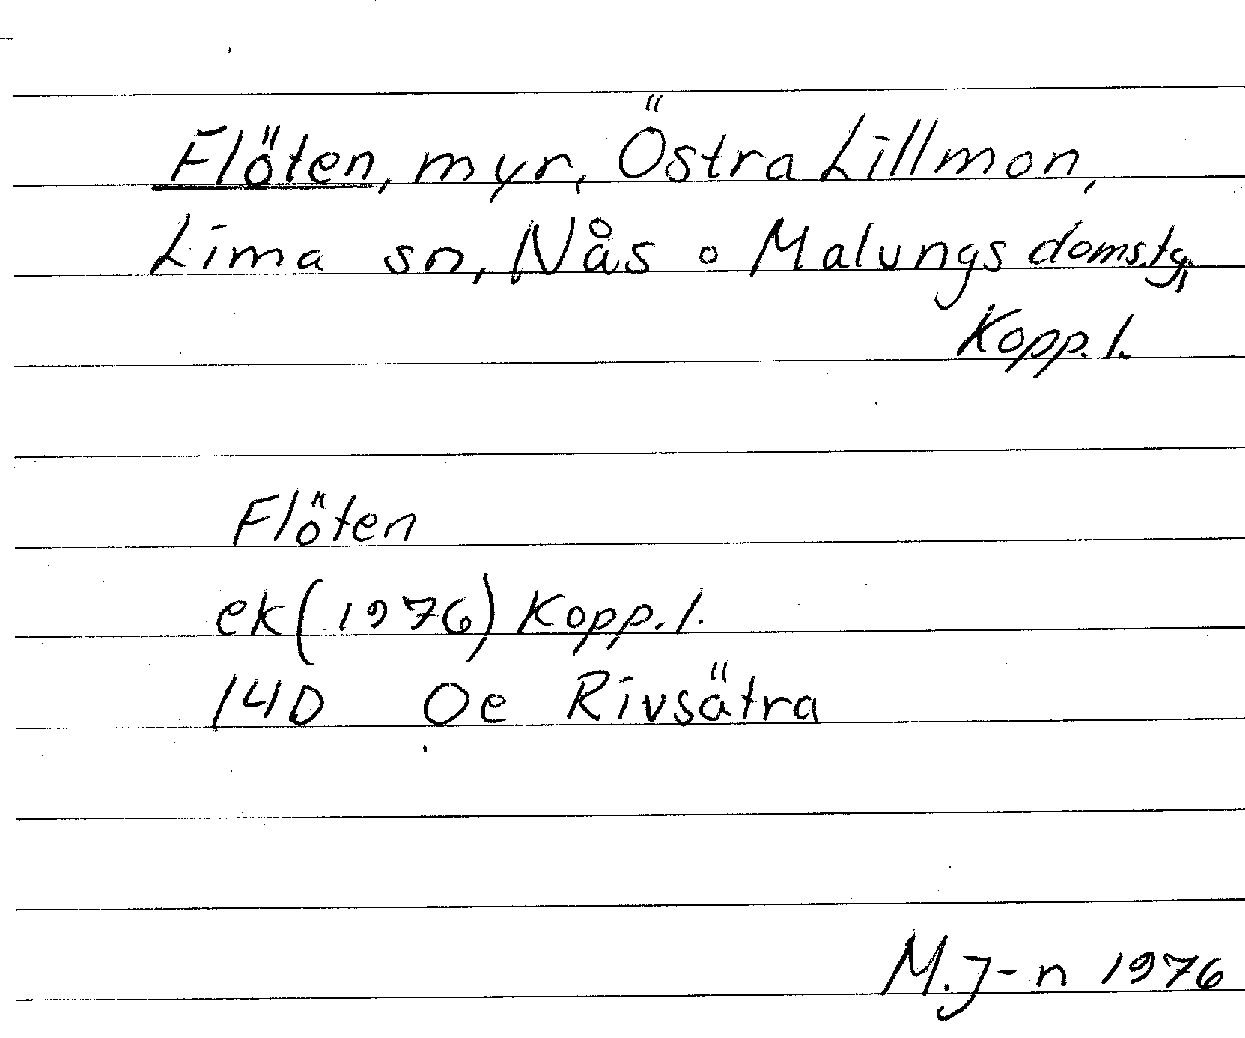 Flöten, myr, Östra Lillmon,
Lima sn, Nås o Malungs domstg,
Kopp.l.
Flöten
ek (1976) Kopp.l.
14D Oe Rivsätra
M.J-n 1976